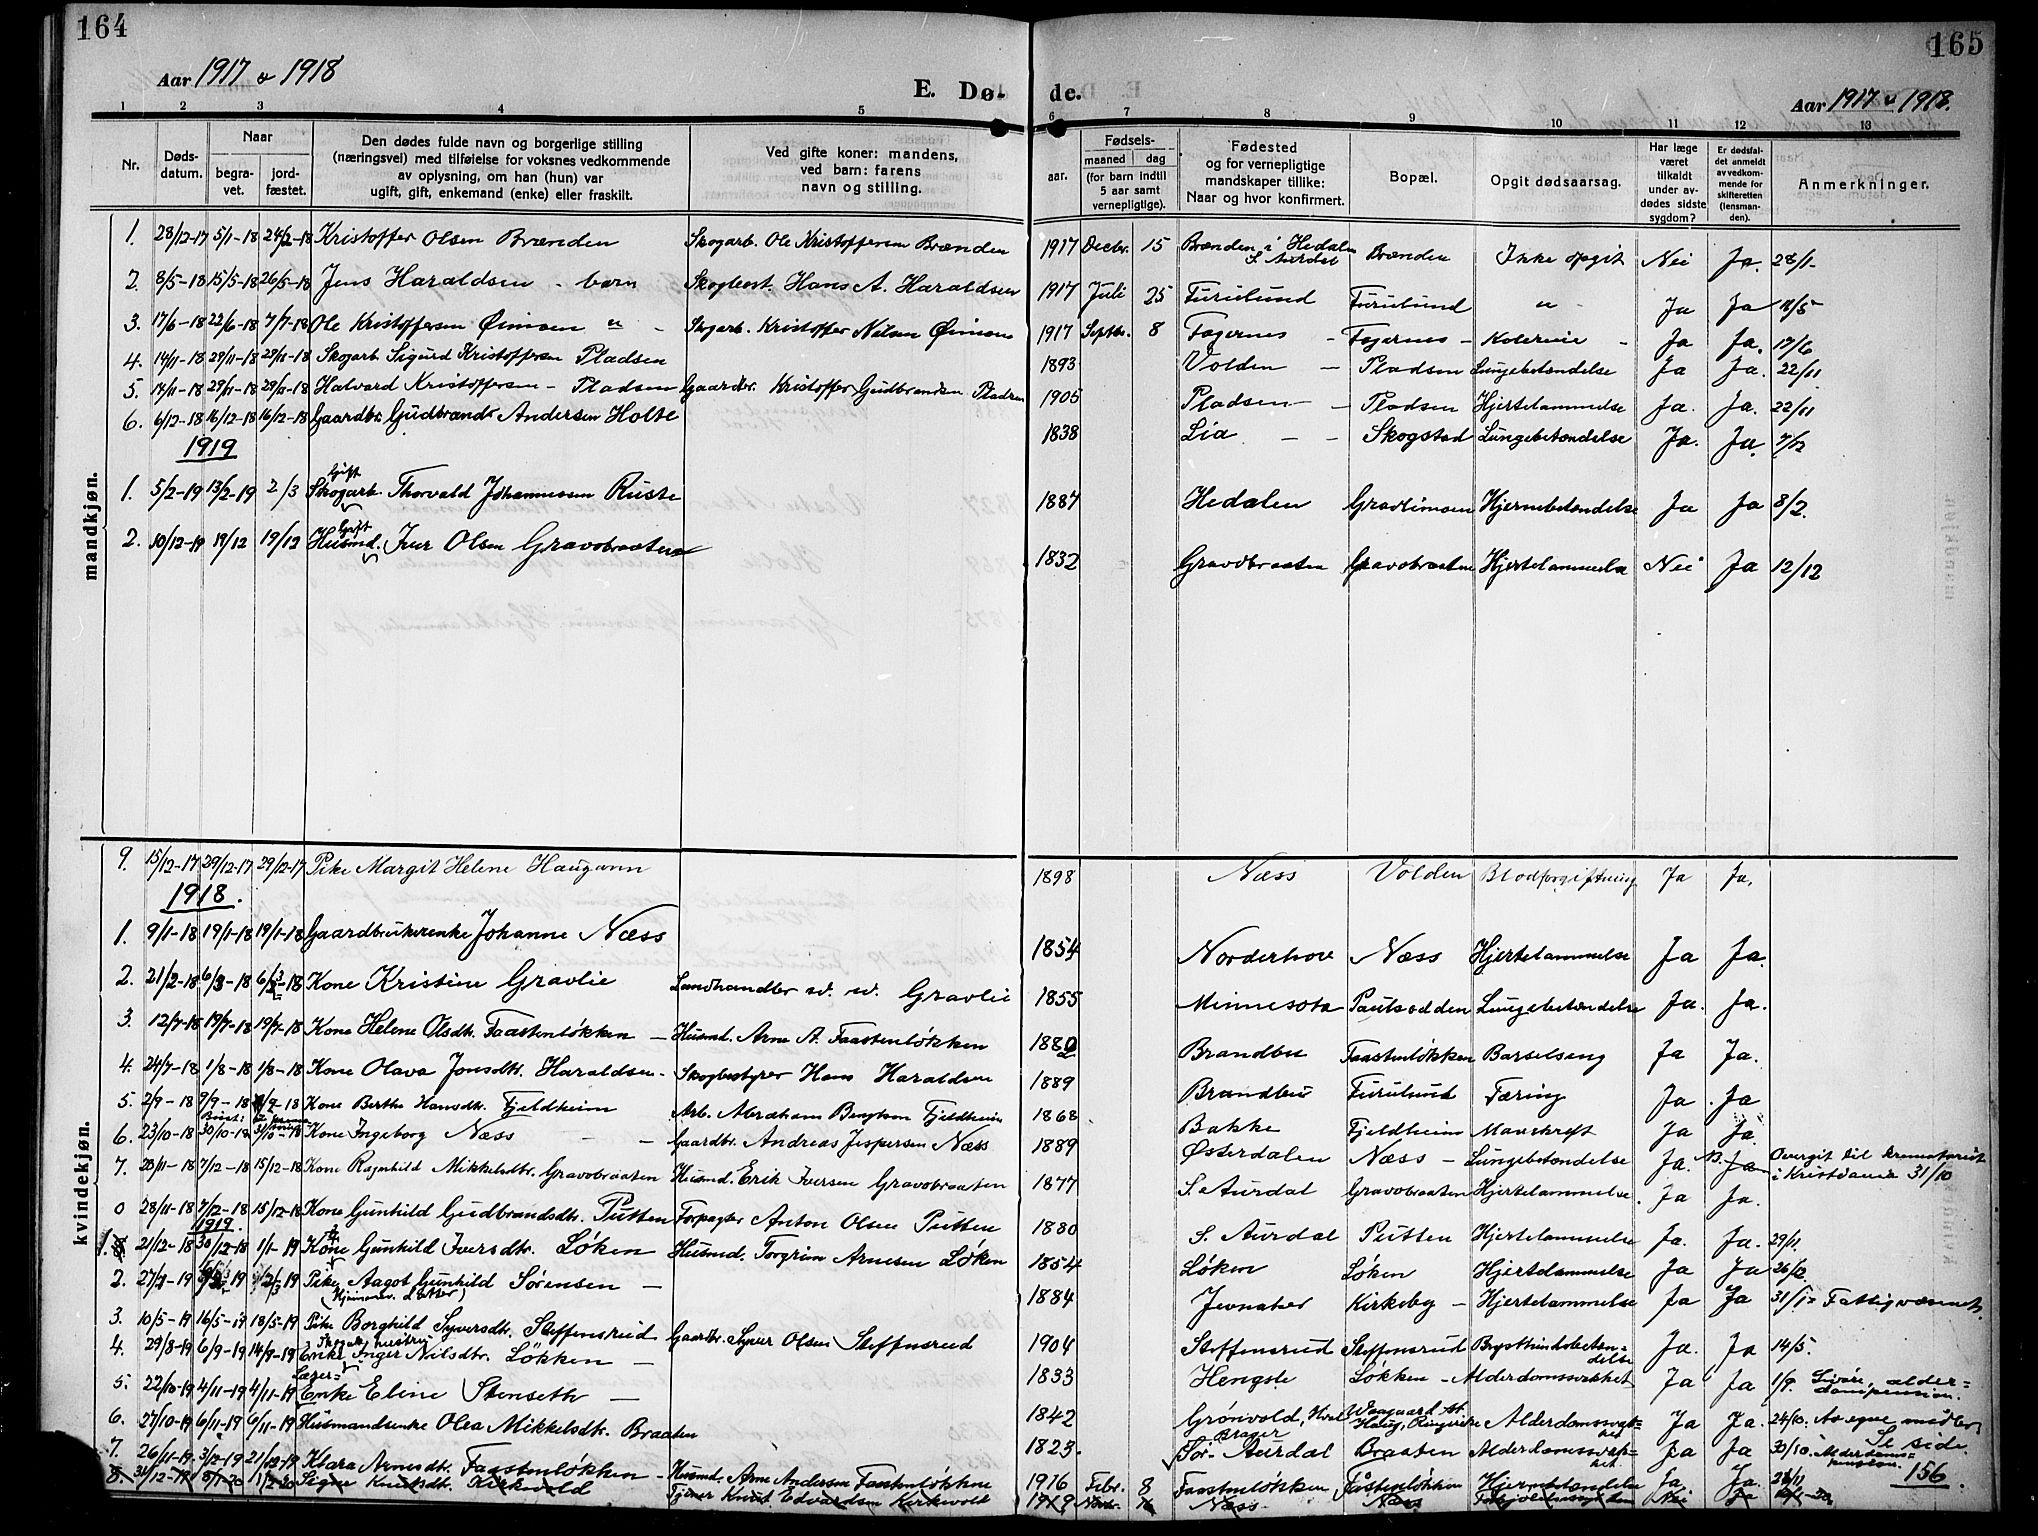 164
165
Aar 1917 & 1918
E. Dø-
de.
Aar 1917 & 1918.
1 2 3 4 5 6 7 8 9 10 11 12 13
Nr. Døds-datum. Naar begra-vet. jord-fæstet. Den dødes fulde navn og borgerlige stilling (næringsvei) med tilføielse for voksnes vedkommende av oplysning, om han (hun) var ugift, gift, enkemand (enke) eller fraskilt. Ved gifte koner: mandens, ved barn: farens navn og stilling. Fødsels- aar. maaned dag (for barn indtil 5 aar samt vernepligtige). Fødested og for vernepligtige mandskaper tillike: Naar og hvor konfirmert. Bopæl. Opgit dødsaarsag. Har læge været tilkaldt under av-dødes sidste sygdom? Er dødsfal-det anmeldt av vedkom-mende for skifteretten (lensman-den). Anmerkninger.
mandkjøn.
1. 28/12-17 5/1-18 24/2-18 Kristoffer Olsen Brænden Skogarb. Ole Kristoffersen Brænden 1917 Decbr. 15 Brænden i Hedalen S. Aurdal Brænden Ikke opgit Nei Ja. 28/1-
2. 8/5-18 15/5-18 26/5-18 Jens Haraldsen - barn Skogbest. Hans A. Haraldsen 1917 Juli 25 Furulund Furulund " - Ja Ja 11/5
3. 17/6-18 22/6-18 7/7-18 Ole Kristoffersen Øimoen " - Skogarb. Kristoffer Nilsen Øimoen 1917 Septbr. 8 Fagernes - Fagernes - Kolerine - Ja Ja. 19/6
4. 14/11-18 29/11-18 29/11-18 Skogarb Sigurd Kristoffersen Pladsen 1893 Volden - Pladsen Lungebetændelse Ja Ja. 22/11
5. 14/11-18 29/11-18 29/11-18 Halvard Kristoffersen - Pladsen Gaardbr. Kristoffer Gudbrandsen Pladsen 1905 Pladsen - - Pladsen Hjertelammelse Ja. Ja. 22/11
6. 6/12-18 16/12-18 16/12-18 Gaardbr. Gudbrand Andersen Holte 1838 Lia - - Skogstad Lungebetændelse Ja. Ja. 7/12
1919
1. 5/2-19 13/2-19 2/3 Gift Skogarb. Thorvald Johannessen Ruste 1887 Hedalen Gravlimoen Hjernebetændelse Ja Ja 8/2.
2. 10/12-19 19/12 19/12 Gift Husmd. Iver Olsen Gravobraaten 1832 Gravobraaten Gravobraaten Hjertelammelse Nei Ja 12/12
kvindekjøn.
9. 15/12-17 29/12-17 29/12-17 Pike Margit Helene Haugann 1898 Næss Volden Blodforgiftning Ja Ja.
1918.
1. 9/1-18 19/1-18 19/1-18 Gaardbrukerenke Johanne Næss 1854 Norderhov Næss Hjertelammelse Ja Ja.
2. 21/2-18 6/3-18 6/3-18 Kone Kristine Gravlie Landhandler Gravlie 1855 Minnesota Paulsodden Lungebetændelse Ja. Ja.
3. 12/7-18 19/7-18 19/7-18 Kone Helene Olsdtr. Faastenløkken - Husmd. Arne A. Faastenløkken 1882 Brandbu Faastenløkken Barselseng Ja Ja.
4. 24/7-18 1/8-18 1/8-18 Kone Olava Jonsdtr. Haraldsen - Skogbestyrer Hans Haraldsen 1889 Brandbu Furulund Tæring Ja Ja
5. 2/9-18 9/9-18 9/9-18 Kone Berthe Hansdtr. Fjeldheim Arb. Abraham Bengtson Fjeldheim 1868 Bakke Fjeldheim Mavekræft Ja Ja.
6. 23/10-18 30/10-18 31/10-18 Kone Ingeborg Næss - - Gaardbr. Andreas Jespersen Næss 1889 Østerdalen Næss - Lungebetændelse Ja. Ja Overgit til krematoriet i Kristiania 31/10
7. 20/11-18 7/12-18 15/12-18 Kone Ragnhild Mikkelsdtr. Gravobraaten Husmd. Erik Iversen Gravobraaten 1877 S. Aurdal Gravobraaten Hjertelammelse. Ja Ja.
28/11-18 7/12-18 15/12-18 Kone Gunhild Gudbrandsdtr. Putten Forpagter Anton Olsen Putten 1880 S. Aurdal Putten Hjertelammelse Ja. Ja. 29/11.
1919.
1. 21/12-18 30/12-18 1/1-19 Kone Gunhild Iversdtr. Løken Husmd. Torgrim Arnesen Løken 1854 Løken Løken Hjertelammelse Ja Ja 26/12
2. 27/1-19 Pike Aagot Gunhild Sørensen - 1884 Jevnaker Kirkeby - Hjertelammelse Ja Ja 31/1- Fattigvæsenet.
3. 10/5-19 16/5-19 18/5-19 Pike Borghild Syversdtr. Steffensrud Gaardbr. Syver Olsen Steffensrud 1904 Steffensrud Steffensrud Brysthindebetæn-delse Ja. Ja 14/5.
4. 29/8-19 6/9-19 14/9-19 Enke Inger Nilsdtr. Løkken - 1833 Hengsle Løkken - Alderdomssvakhet Ja Ja 1/9. alder-domspension.
5. 22/10-19 4/11-19 4/11-19 Læger= Enke Eline Stenseth - 1842 Grønvold, Haug, Ringerike Alderdomssvak-het Ja Ja. 24/10. Av egne midler
6. 27/10-19 6/11-19 9/11-19 Husmandsenke Olea Mikkelsdtr. Braaten 1823. Sør-Aurdal Braaten Alderdomssvak-het. Ja Ja 30/10. Alderdoms-pension. Se side 156
7. 26/11-19 3/12-19 21/12-19 Klara Arnesdtr. Faastenløkken - Husmd. Arne Andersen Faastenløkken 1916 Febr. 8 Faastenløkken Fåstenløkken Hjernebetændelse Ja. Ja.
8. 31/12-19 8/1-20 Signe Knutsdt. Kirkevold Tjener Knut Edvardsen Kirkevold 1919 Næss Næss Nei Ja